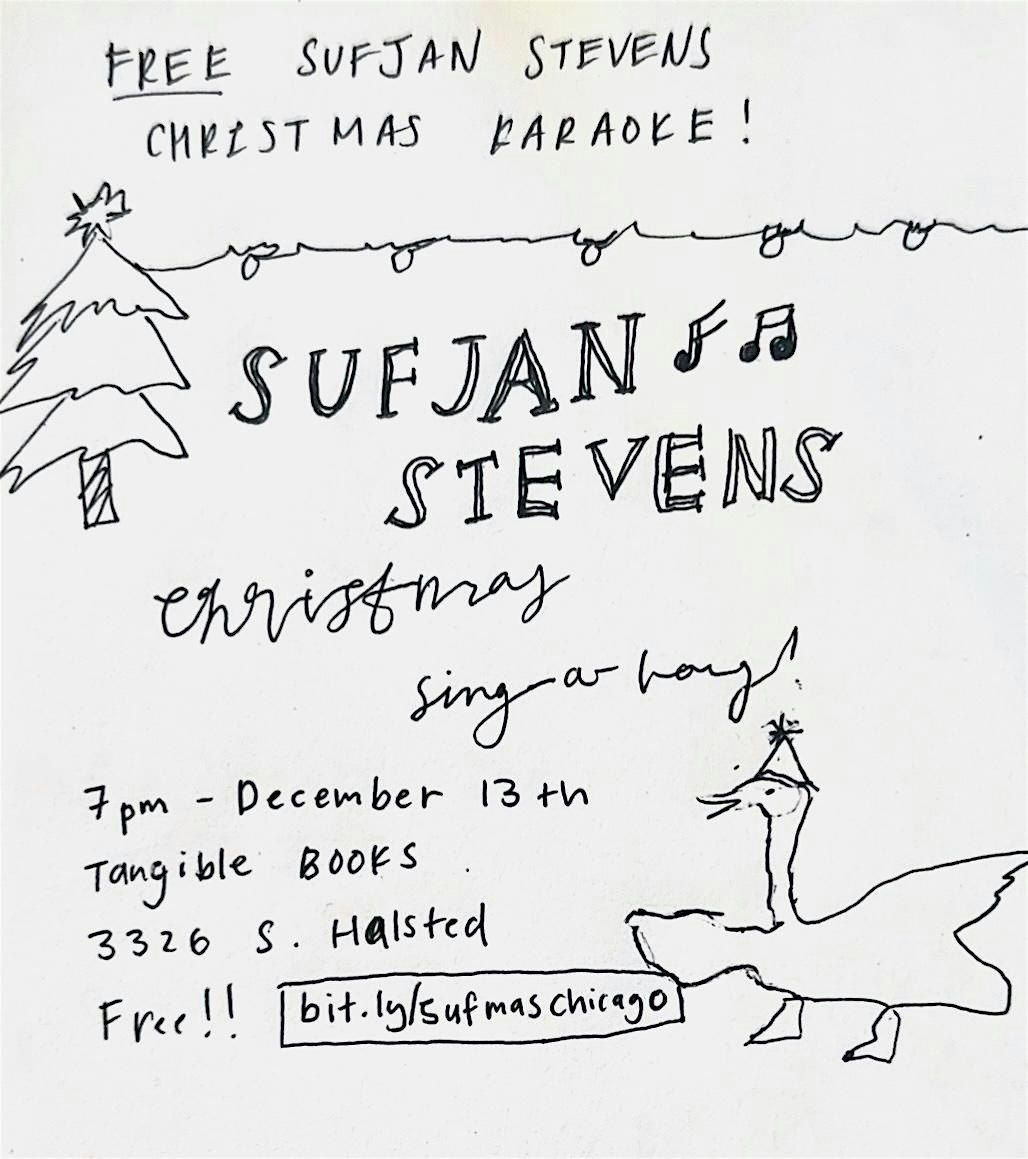 FREE SUFJAN STEVENS
CHRISTMAS KARAOKE!
SUFJAN
STEVENS
christmas
sing-a-long!
7pm - December 13th
Tangible BOOKS
3326 S. Halsted
Free!! bit.ly/sufmaschicago